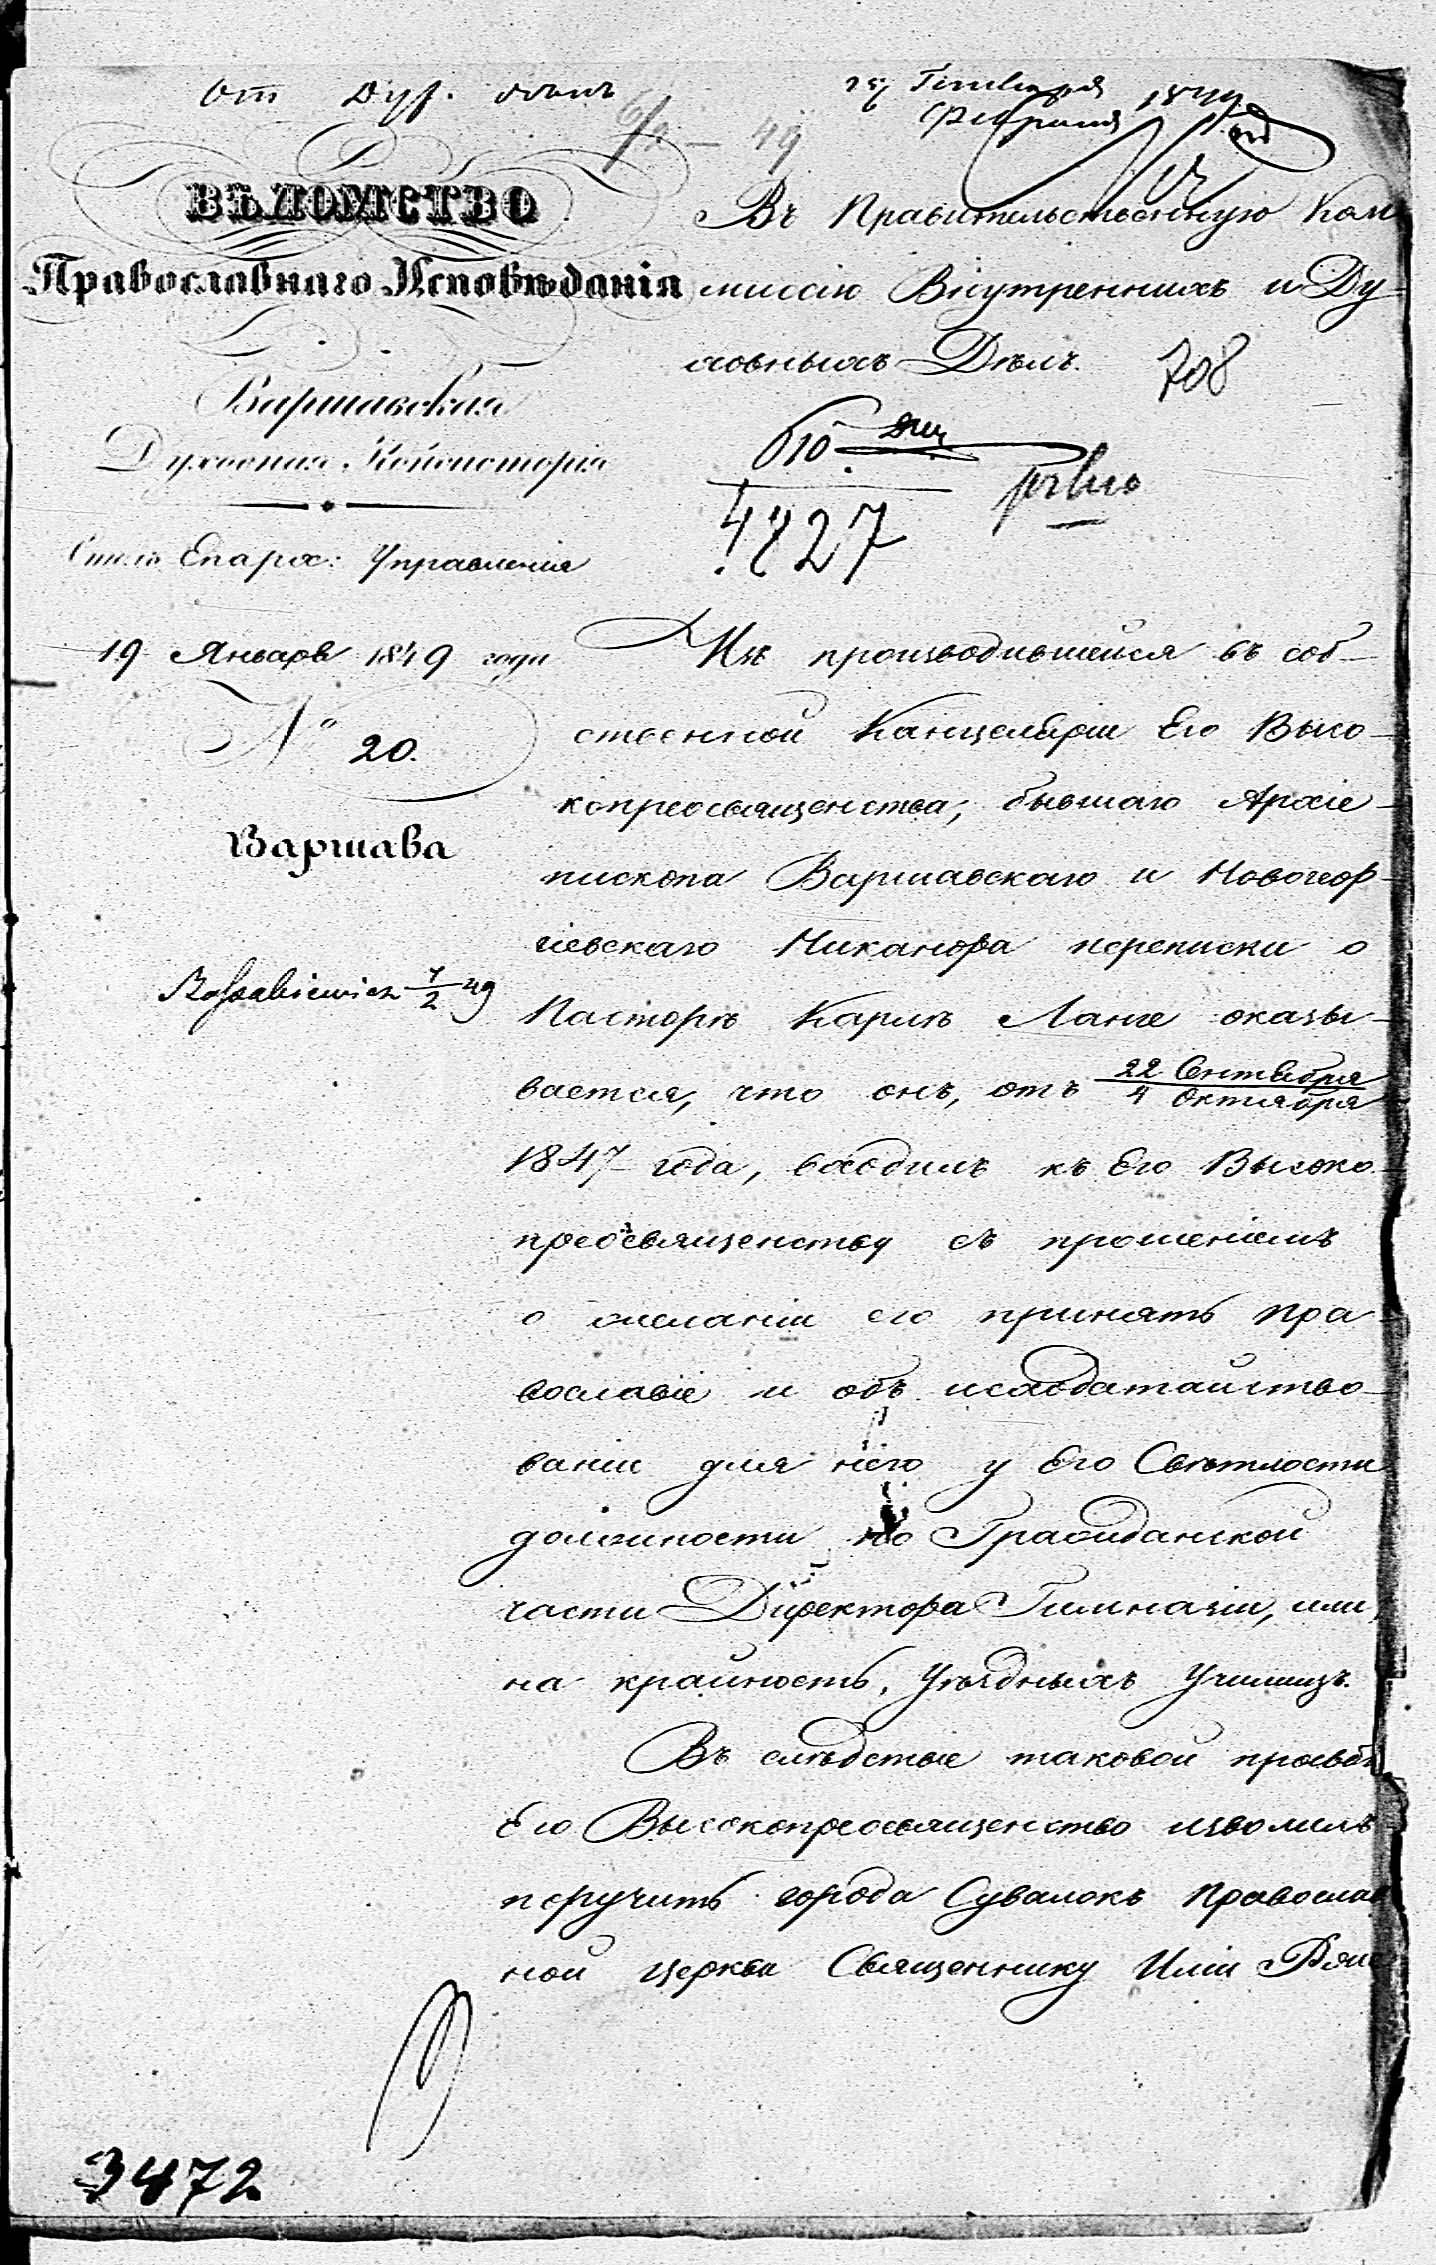 6/2 — 49
ВѢДОМСТВО
Православнаго Исповѣданія
Варшавская
Духовная Консисторія
Столъ Епарх: Управленія
19 Январь 1849 года
№ 20.
Варшава
7/2 49
Въ Правительственную Ком-
миссію Внутреннихъ и Ду-
ховныхъ Дѣлъ.
708
4827
Изъ производившейся въ соб-
ственной Канцеляріи Его Высо-
копреосвященства, бывшаго Архіе-
пископа Варшавскаго и Новогеор-
гіевскаго Никанора переписки о
Пасторѣ Карлѣ Ланге оказы-
вается, что онъ, отъ 22 Сентября / 4 Октября
1847 года, входилъ къ Его Высоко-
преосвященству съ прошеніемъ
о желаніи его принять пра-
вославіе и объ исходатайство-
ваніи для него у Его Свѣтлости
должности по Гражданской
части Директора Гимназіи, или,
на крайность, Уѣздныхъ Училищъ.
Въ слѣдствіе таковой просьбы
Его Высокопреосвященство изволилъ
поручить города Сувалокъ Православ
ной церкви Священнику Иліи
3472